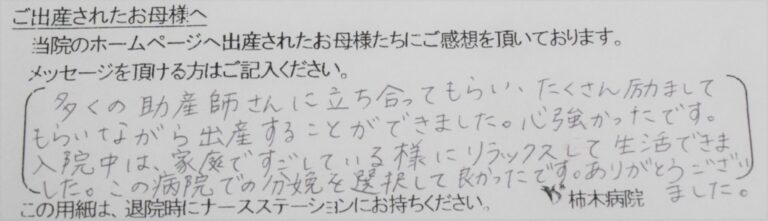 ご出産されたお母様へ
当院のホームページへ出産されたお母様たちにご感想を頂いております。
メッセージを頂ける方はご記入ください。
多くの助産師さんに立ち合ってもらい、たくさん励まして
もらいながら出産することができました。心強かったです。
入院中は、家庭ですごしている様にリラックスして生活できま
した。この病院での分娩を選択して良かったです。ありがとうござい
ました。
この用紙は、退院時にナースステーションにお持ちください。 柿木病院